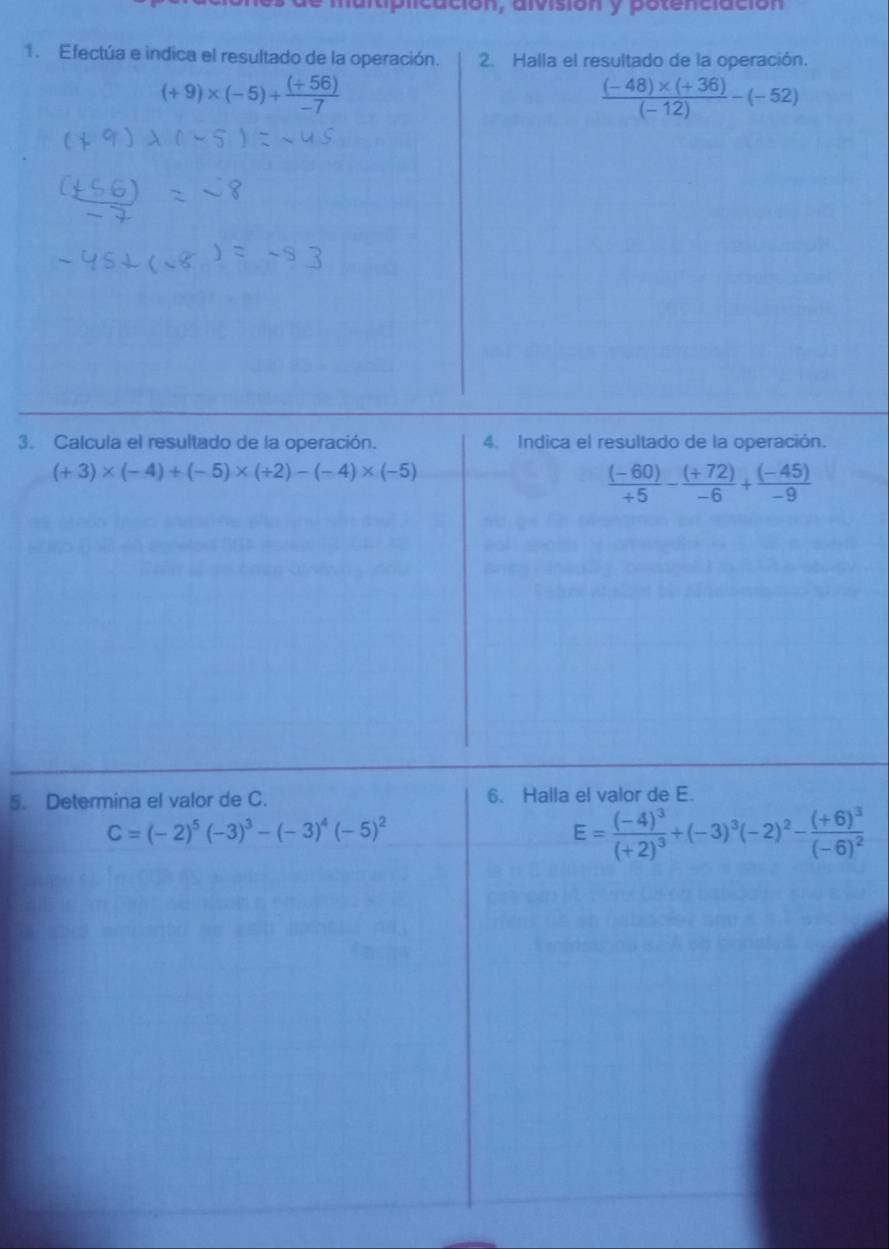 multiplicación, división y potenciación
1. Efectúa e indica el resultado de la operación.
(+ 9) × (– 5) + (+ 56)/–7
(+9) × (-5) = -45
(+56)/-7 = -8
-45 + (-8) = -53
2. Halla el resultado de la operación.
(– 48) × (+ 36)/(– 12) – (– 52)
3. Calcula el resultado de la operación.
(+ 3) × (– 4) + (– 5) × (+2) – (– 4) × (–5)
4. Indica el resultado de la operación.
(– 60)/+5 – (+ 72)/–6 + (– 45)/–9
5. Determina el valor de C.
C = (– 2)⁵ (–3)³ – (– 3)⁴ (– 5)²
6. Halla el valor de E.
E = (–4)³/(+2)³ + (–3)³(–2)² – (+6)³/(–6)²